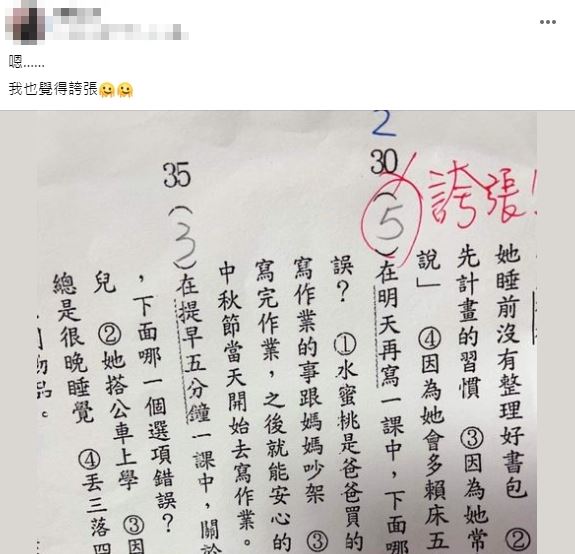 嗯......
我也覺得誇張🫠🫠
誇張!
她睡前沒有整理好書包 ②
先計畫的習慣 ③因為她常
說」 ④因為她會多賴床五
2
30(5)在明天再寫一課中，下面哪
誤？ ①水蜜桃是爸爸買的
寫作業的事跟媽媽吵架 ③
寫完作業，之後就能安心的
中秋節當天開始去寫作業。
35(3)在提早五分鐘一課中，關於
，下面哪一個選項錯誤？
兒 ②她搭公車上學 ③因
總是很晚睡覺 ④丟三落四
物品。